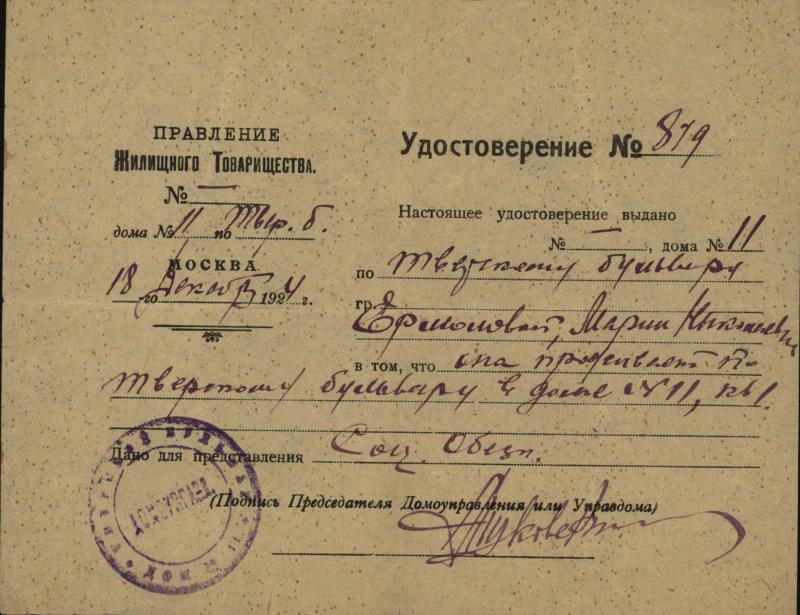 ПРАВЛЕНИЕ
Жилищного Товарищества.
№ —
дома № 11 по Твр. б.
МОСКВА
18-го Декабря 1924 г.
Удостоверение № 879
Настоящее удостоверение выдано
№ —, дома № 11
по Тверскому бульвару
гр.
Ермоловой, Марии Николаевне
в том, что она проживает по
Тверскому бульвару в доме № 11, кв 1.
Дано для представления Соц. Обесп.
(Подпись Председателя Домоуправления или Управдома)
ДОМОУПРАВЛ